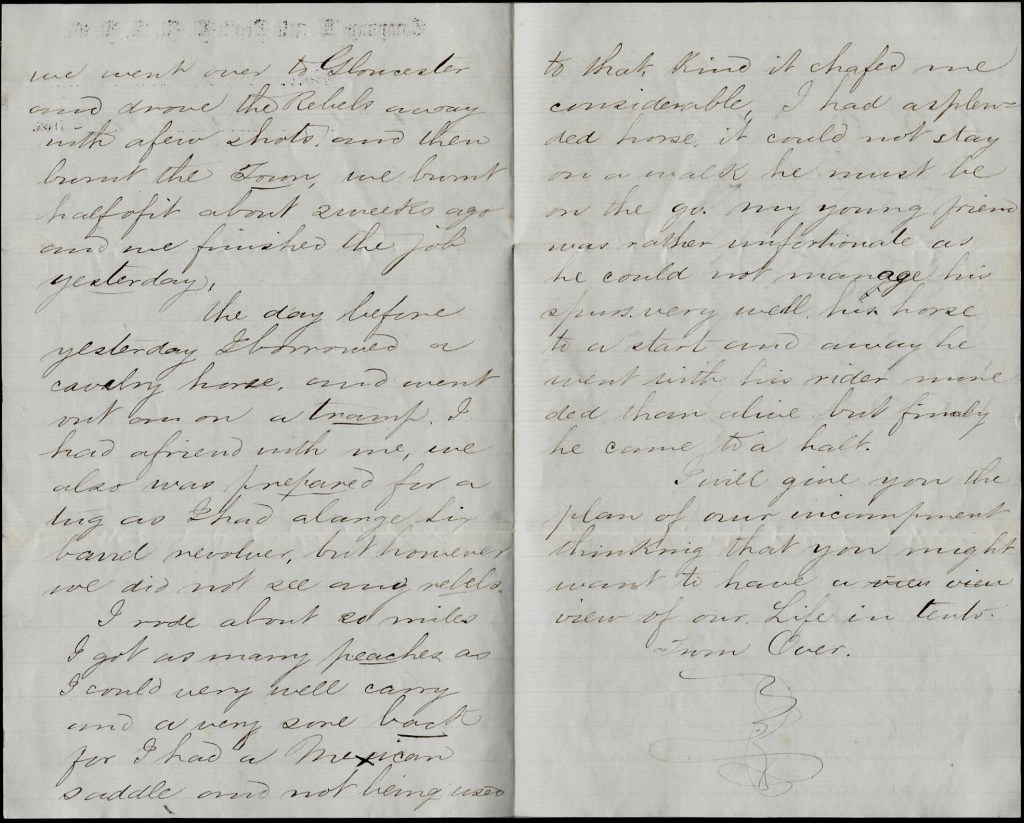 we went over to Gloucester
and drove the Rebels away
with afew shots, and then
burnt the Town, we burnt
halfofit about 2 weeks ago
and we finished the job
yesterday,
the day before
yesterday I borrowed a
cavalry horse, and went
out on a tramp. I
had afriend with me, we
also was prepared for a
tug as I had alarge Six
barrel revolver, but however
we did not see any rebels.
I rode about 20 miles
I got as many peaches as
I could very well carry
and a very sore back
for I had a Mexican
saddle and not being used
to that Kind it chafed me
considerable, I had asplen=
ded horse, it could not stay
on a walk he must be
on the go. my young friend
was rather unfortionate as
he could not manage his
spurs very well, his horse
to a start and away he
went with his rider more
ded than alive but finaly
he came to a halt.
I will give you the
plan of our incampment
thinking that you might
want to have a view view
view of our Life in tents.
Turn Over.